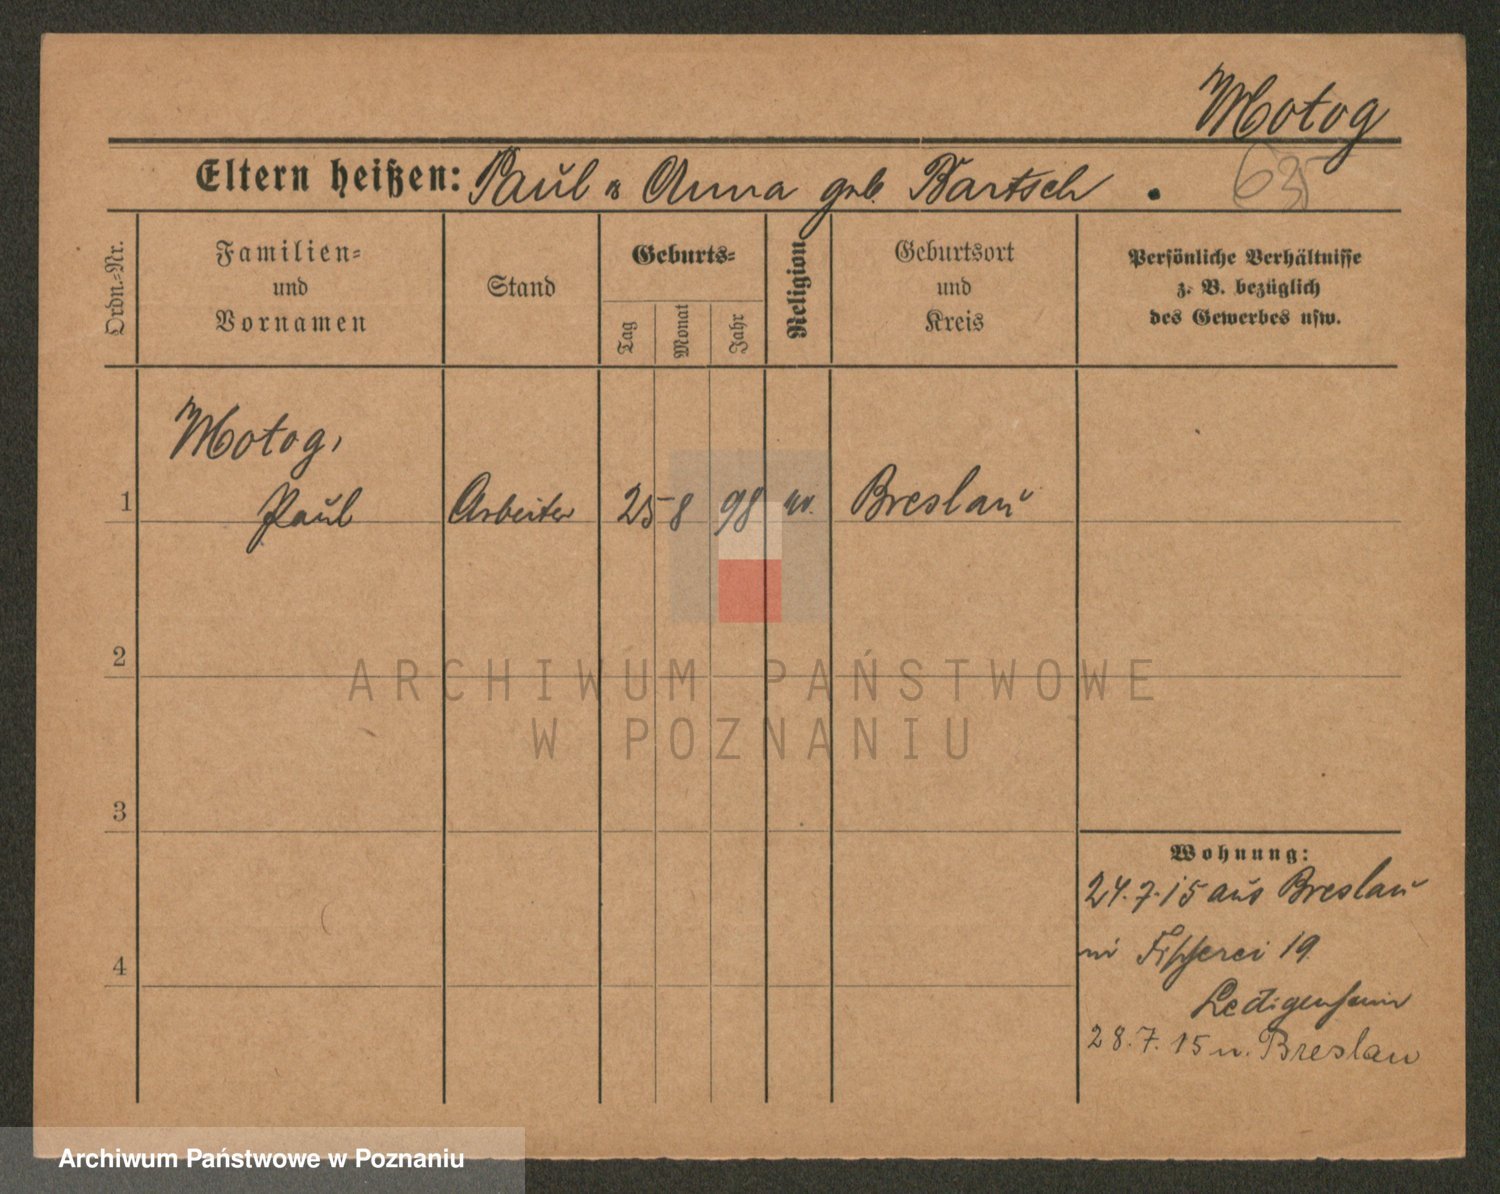 Motog
Eltern heißen: Paul u Anna geb. Bartsch.
635
Ordn.-Nr.
Familien-
und
Vornamen
Stand
Geburts-
Tag
Monat
Jahr
Religion
Geburtsort
und
Kreis
Persönliche Verhältnisse
z. B. bezüglich
des Gewerbes usw.
Motog,
1 Paul Arbeiter 25 8 98 ev. Breslau
2
ARCHIWUM PAŃSTWOWE
W POZNANIU
3
4
Wohnung:
24.7.15 aus Breslau
Fischerei 19
Ledigenheim
28.7.15 n. Breslau
Archiwum Państwowe w Poznaniu